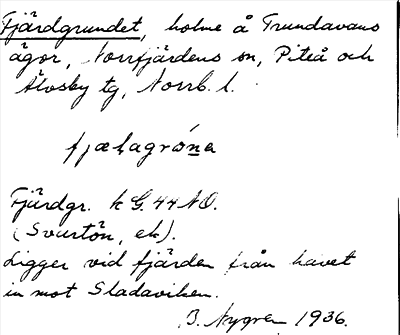 Fjärdgrundet, holme å Trundavans
ägor, Norrfjärdens sn, Piteå och
Älvsby tg, Norrb. l.
fjæḷagróna
Fjärdgr. k G. 44 N.O.
(Svartön, ek).
Ligger vid fjärden från havet
in mot Sladaviken.
B. Nygren 1936.